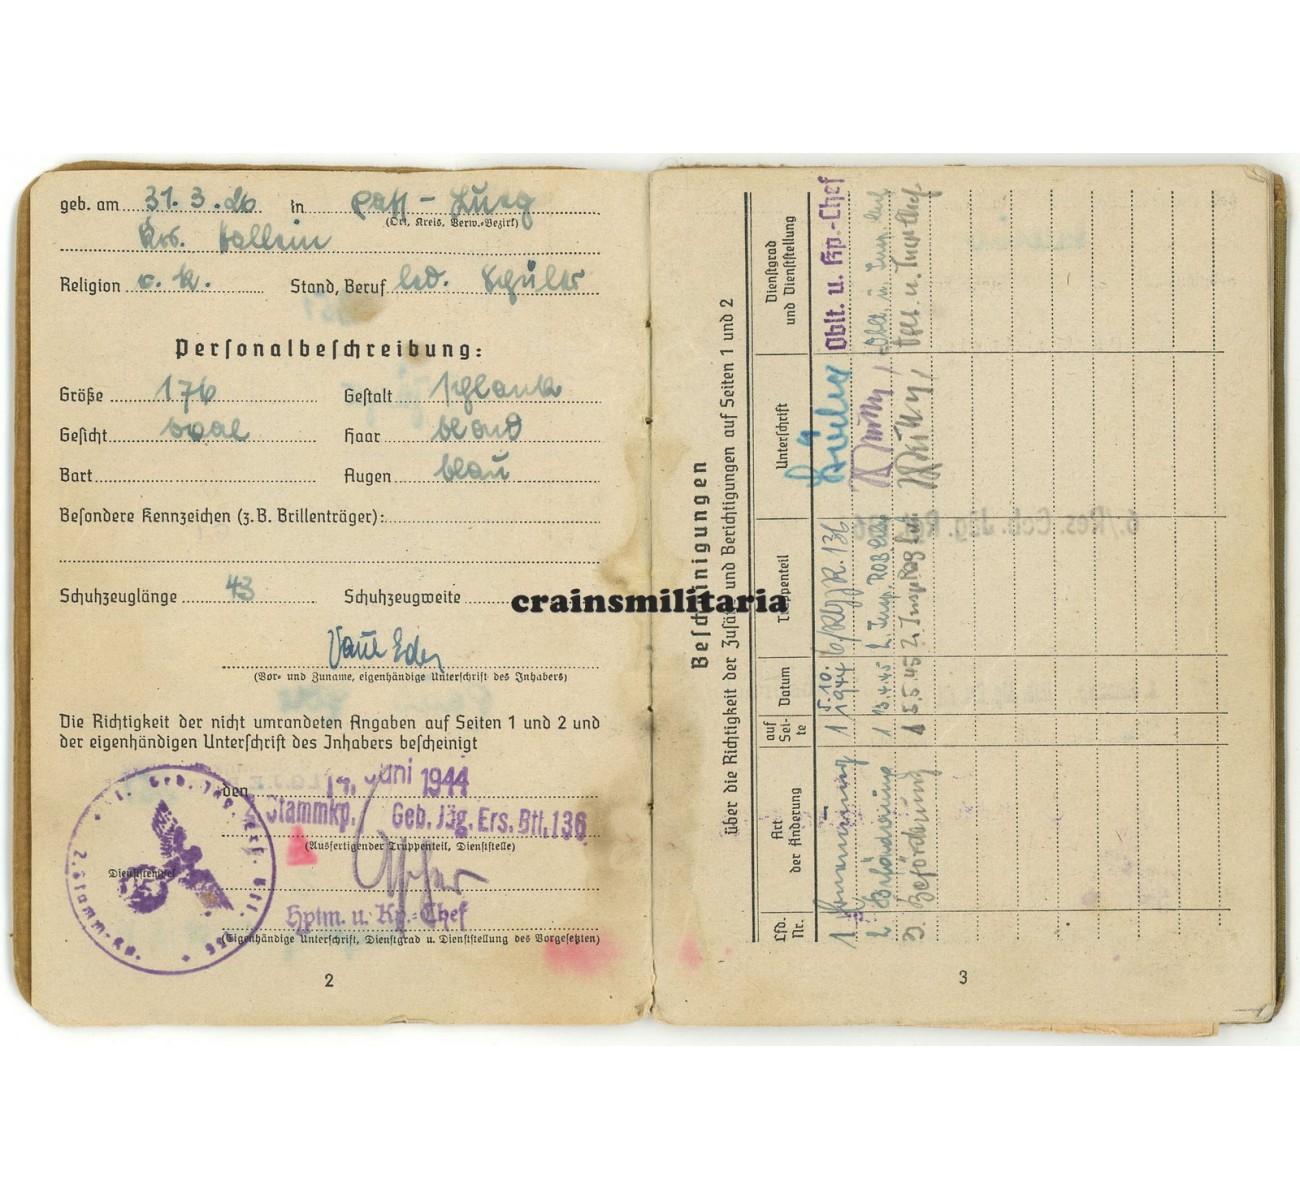 geb. am 31.3.26 in Paß-Lueg
(Ort, Kreis, Verw.-Bezirk)
Krs. Hallein
Religion r. k. Stand, Beruf led. Schüler
Personalbeschreibung:
Größe 176 Gestalt schlank
Gesicht oval Haar blond
Bart Augen blau
Besondere Kennzeichen (z.B. Brillenträger):
Schuhzeuglänge 43 Schuhzeugweite
crainsmilitaria
Eder
(Vor- und Zuname, eigenhändige Unterschrift des Inhabers)
Die Richtigkeit der nicht umrandeten Angaben auf Seiten 1 und 2 und
der eigenhändigen Unterschrift des Inhabers bescheinigt
den Juni 1944
Stammkp. Geb. Jäg. Ers. Btl. 136
(Ausfertigender Truppenteil, Dienststelle)
Dienststempel
2. Stamm-Kp. Geb. Jäg. Ers. Btl. 136
Hptm. u. Kp.-Chef
(Eigenhändige Unterschrift, Dienstgrad u. Dienststellung des Vorgesetzten)
2
Bescheinigungen
über die Richtigkeit der Zusätze und Berichtigungen auf Seiten 1 und 2
Lfd. Nr. Art der Änderung auf Seite Datum Truppenteil Unterschrift Dienstgrad und Dienststellung
1 Ernennung 1 5.10. 1944 136 Oblt. u. Kp.-Chef
2 Beförderung 1 13.4.45 2. Insp.
3. Beförderung 1 1.5.45 2. Insp.
3